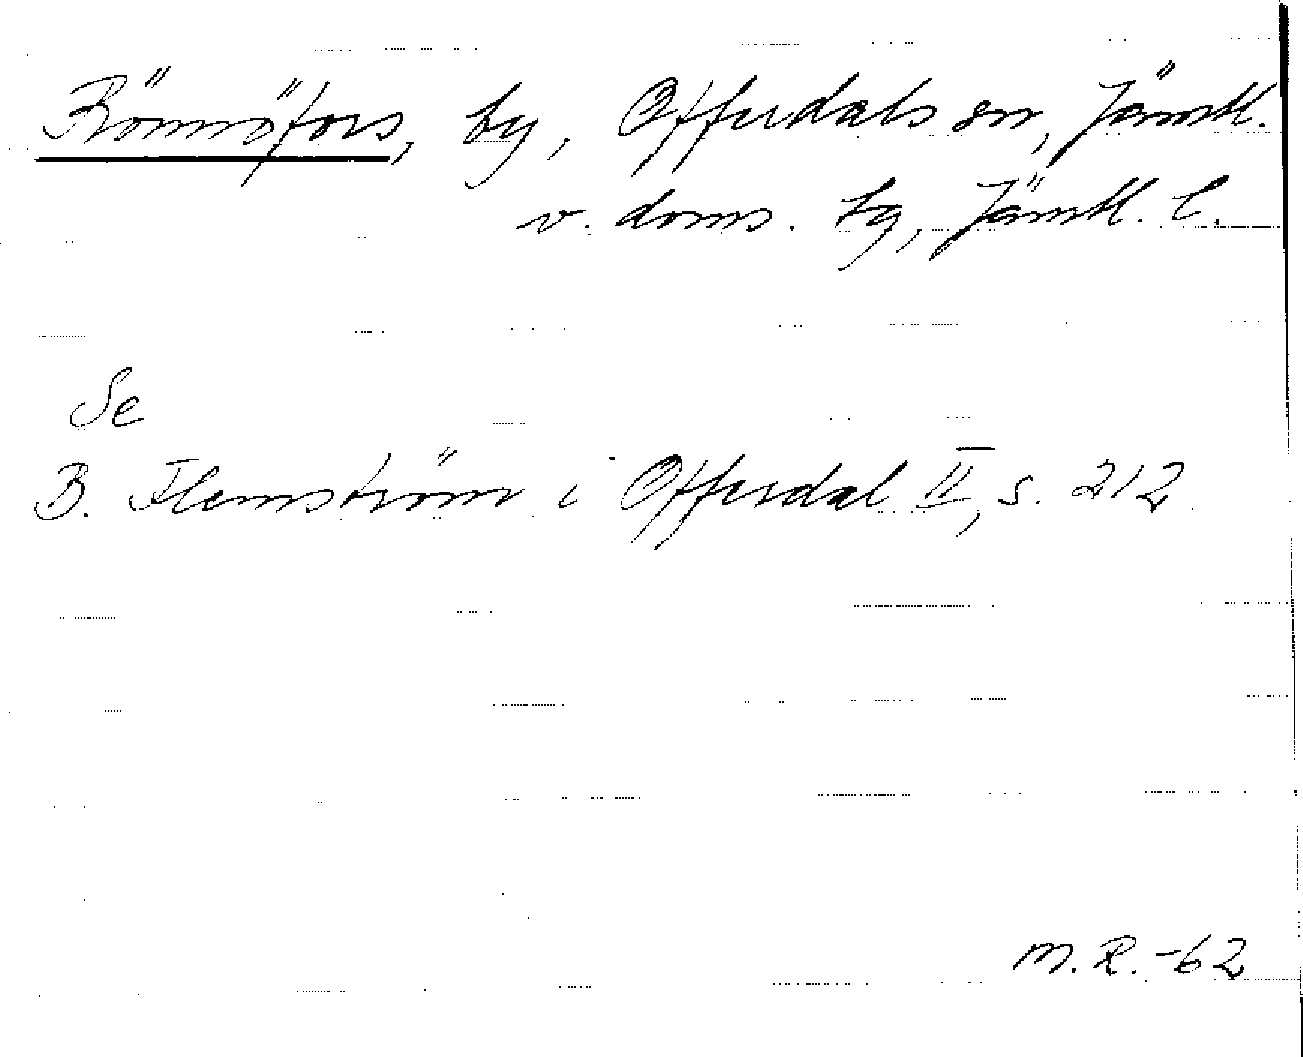 Rönnöfors, by, Offerdals sn, Jämtl.
v. doms. tg, Jämtl. l.
Se
B. Flemström i Offerdal II, s. 212
M.R.-62